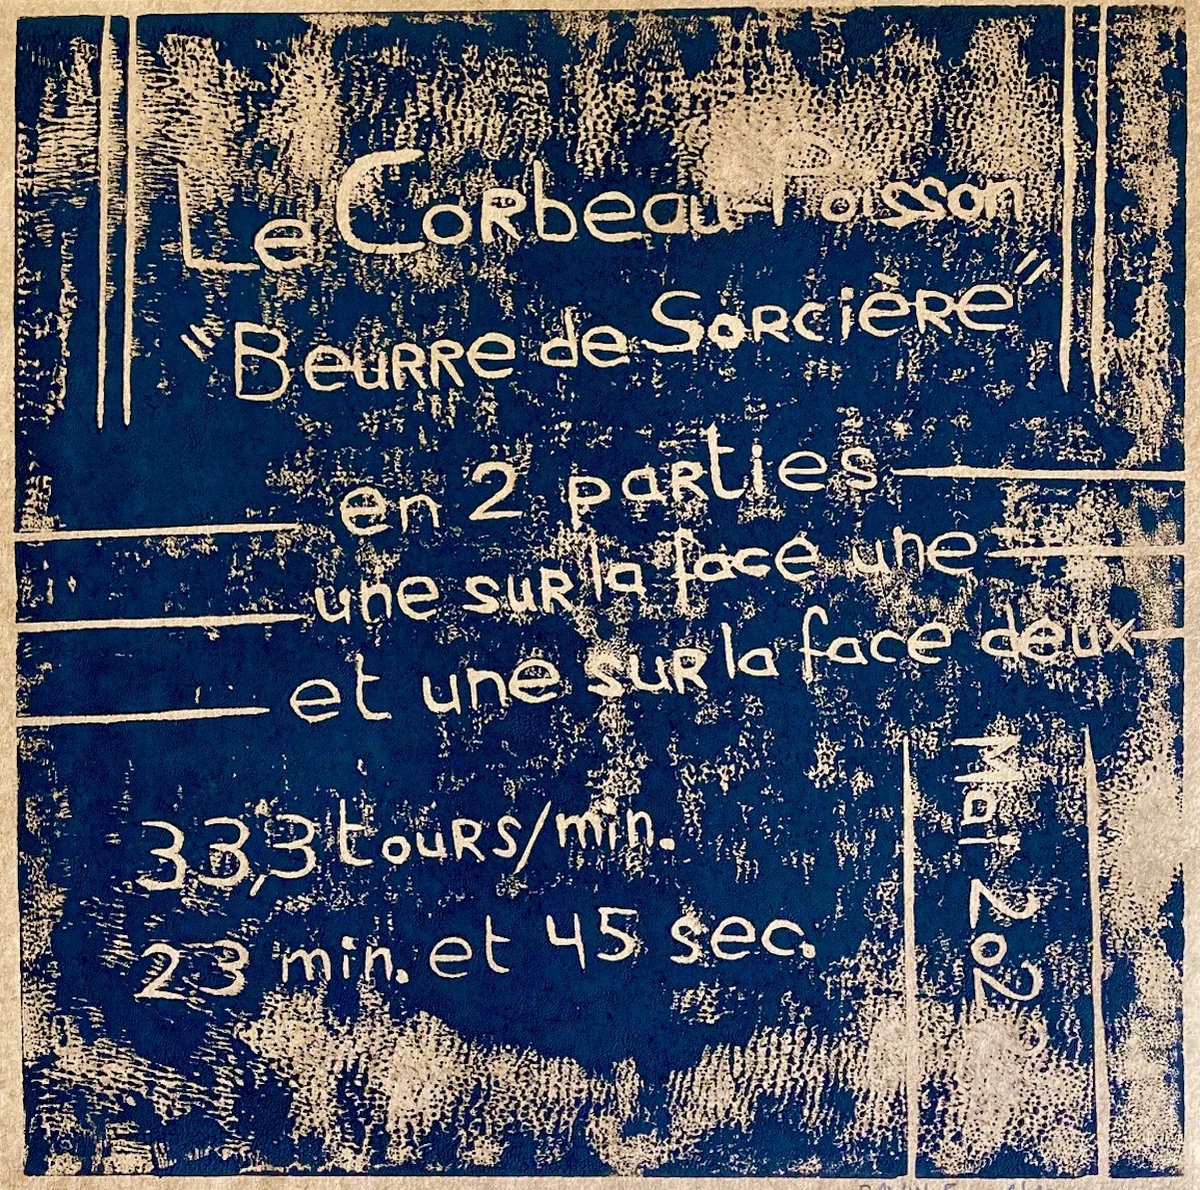 Le Corbeau-Poisson
"Beurre de Sorcière"
en 2 parties
une sur la face une
et une sur la face deux
33,3 tours/min.
23 min. et 45 sec.
Mai 202